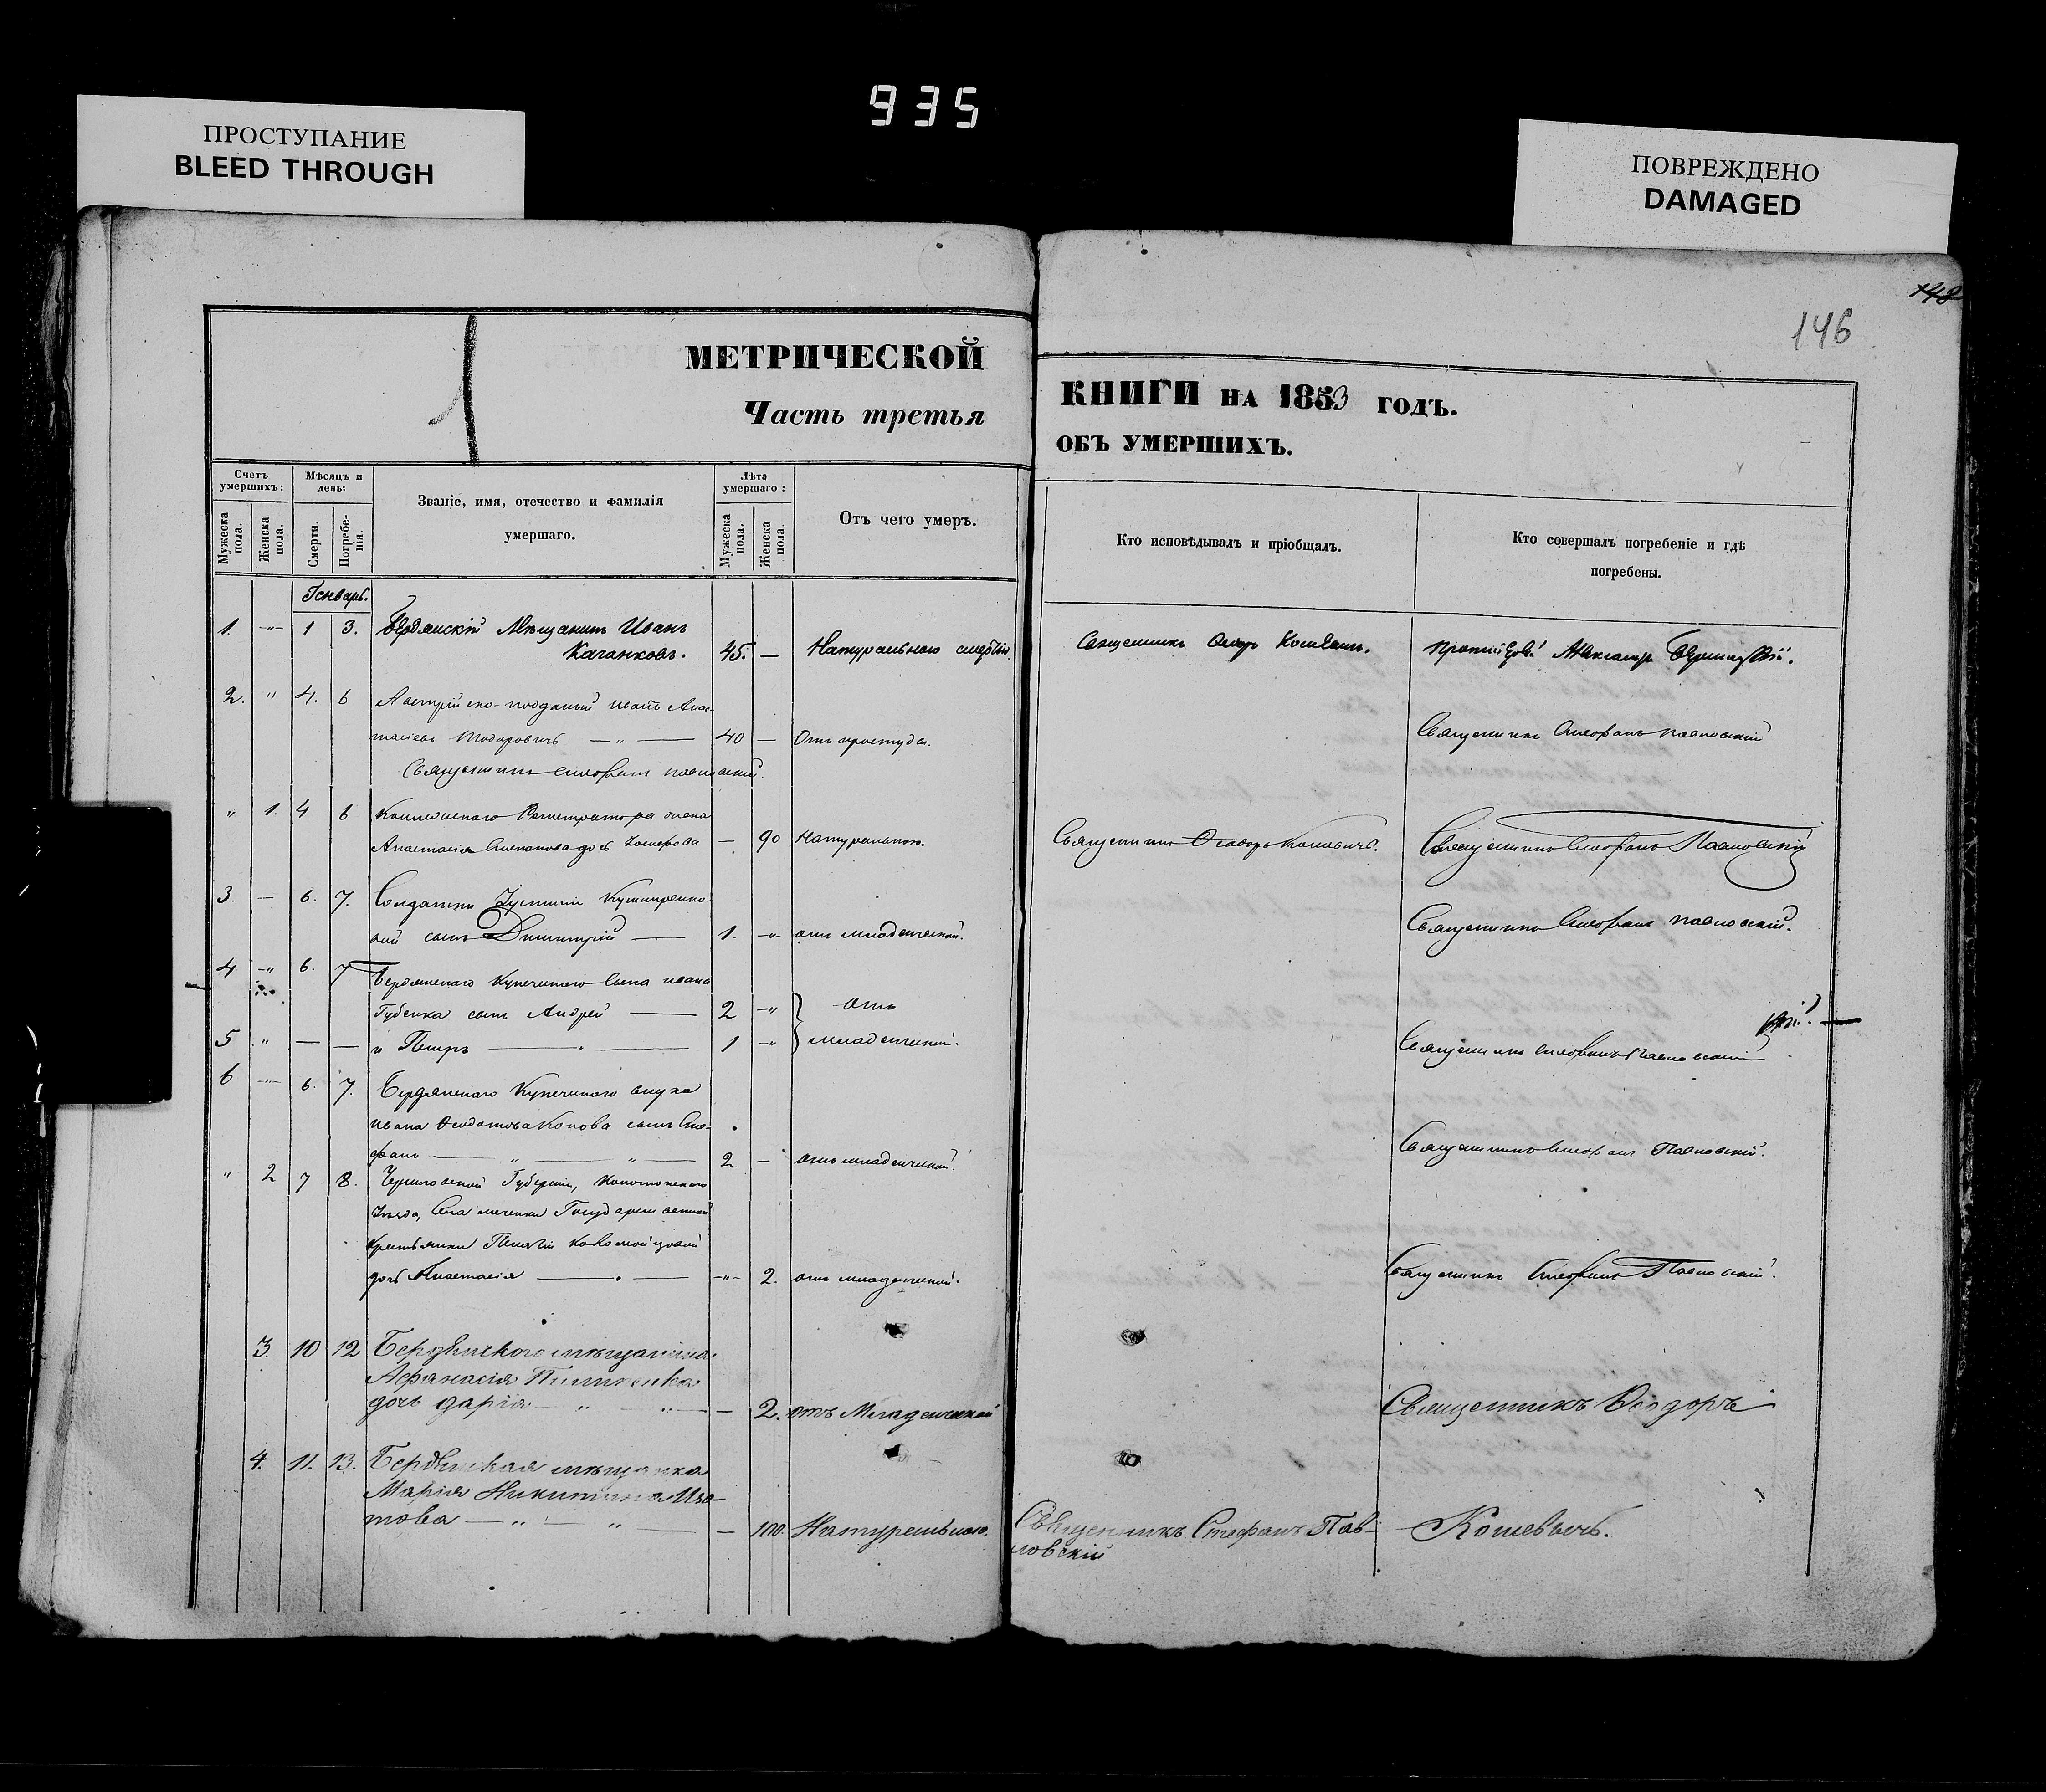 935
ПРОСТУПАНИЕ
BLEED THROUGH
ПОВРЕЖДЕНО
DAMAGED
148
146
МЕТРИЧЕСКОЙ
Часть третья
КНИГИ НА 1853 ГОДЪ.
ОБЪ УМЕРШИХЪ.
Счетъ умершихъ:
Мужеска пола.
Женска пола.
Мѣсяцъ и день:
Смерти.
Погребенія.
Званіе, имя, отечество и фамилія
умершаго.
Лѣта умершаго:
Мужеска пола.
Женска пола.
Отъ чего умеръ.
Кто исповѣдывалъ и пріобщалъ.
Кто совершалъ погребеніе и гдѣ
погребены.
Генварь.
1. -"- 1 3. Бердянскій Мѣщанинъ Иванъ
Каганковъ. 45. — Натуральною смертію Священникъ Ѳеодоръ Кошевичъ. Протоіерей Александръ
2. " 4. 6 Австрійско-подданый Иванъ Анас-
тасіевъ Тодоровичъ — " — 40 — Отъ простуды. Священникъ Стефанъ Павловскій
Священникъ Стефанъ Павловскій.
" 1. 4 6 Коллежскаго Регистратора жена
Анастасія Степанова дочь — 90 Натуральною. Священникъ Ѳеодоръ Кошевичъ. Священникъ Стефанъ Павловскій
3. — 6. 7. Солдатки Іустиніи
вой сынъ Димитрій — 1. -"- отъ младенческой. Священникъ Стефанъ Павловскій.
4 -"- 6. 7 Бердянскаго Купеческаго сына Ивана
Губенка сынъ Андрей — 2 -"- отъ
5 " — — и Петръ — 1 -"- младенческой. Священникъ Стефанъ Павловскій
6 -"- 6. 7. Бердянскаго Купеческаго внука
Ивана Ѳеодотова Конова сынъ Сте-
фанъ — " — " — 2 — отъ младенческой. Священникъ Стефанъ Павловскій.
" 2 7 8. Черниговской Губерніи, Конотопскаго
Уѣзда, Села Государственной
крестьянки Пелагіи
дочь Анастасія — -"- 2. отъ младенческой. Священникъ Стефанъ Павловскій.
3. 10 12 Бердянскаго мѣщанина
Афанасія
дочь Дарія — " — " — 2. отъ Младенческой Священникъ Ѳеодоръ
4. 11. 13. Бердянская мѣщанка
Марія Никитина Изо-
това — " — " — 100. Натуральною. Священникъ Стефанъ Пав- Кошевичъ.
ловскій